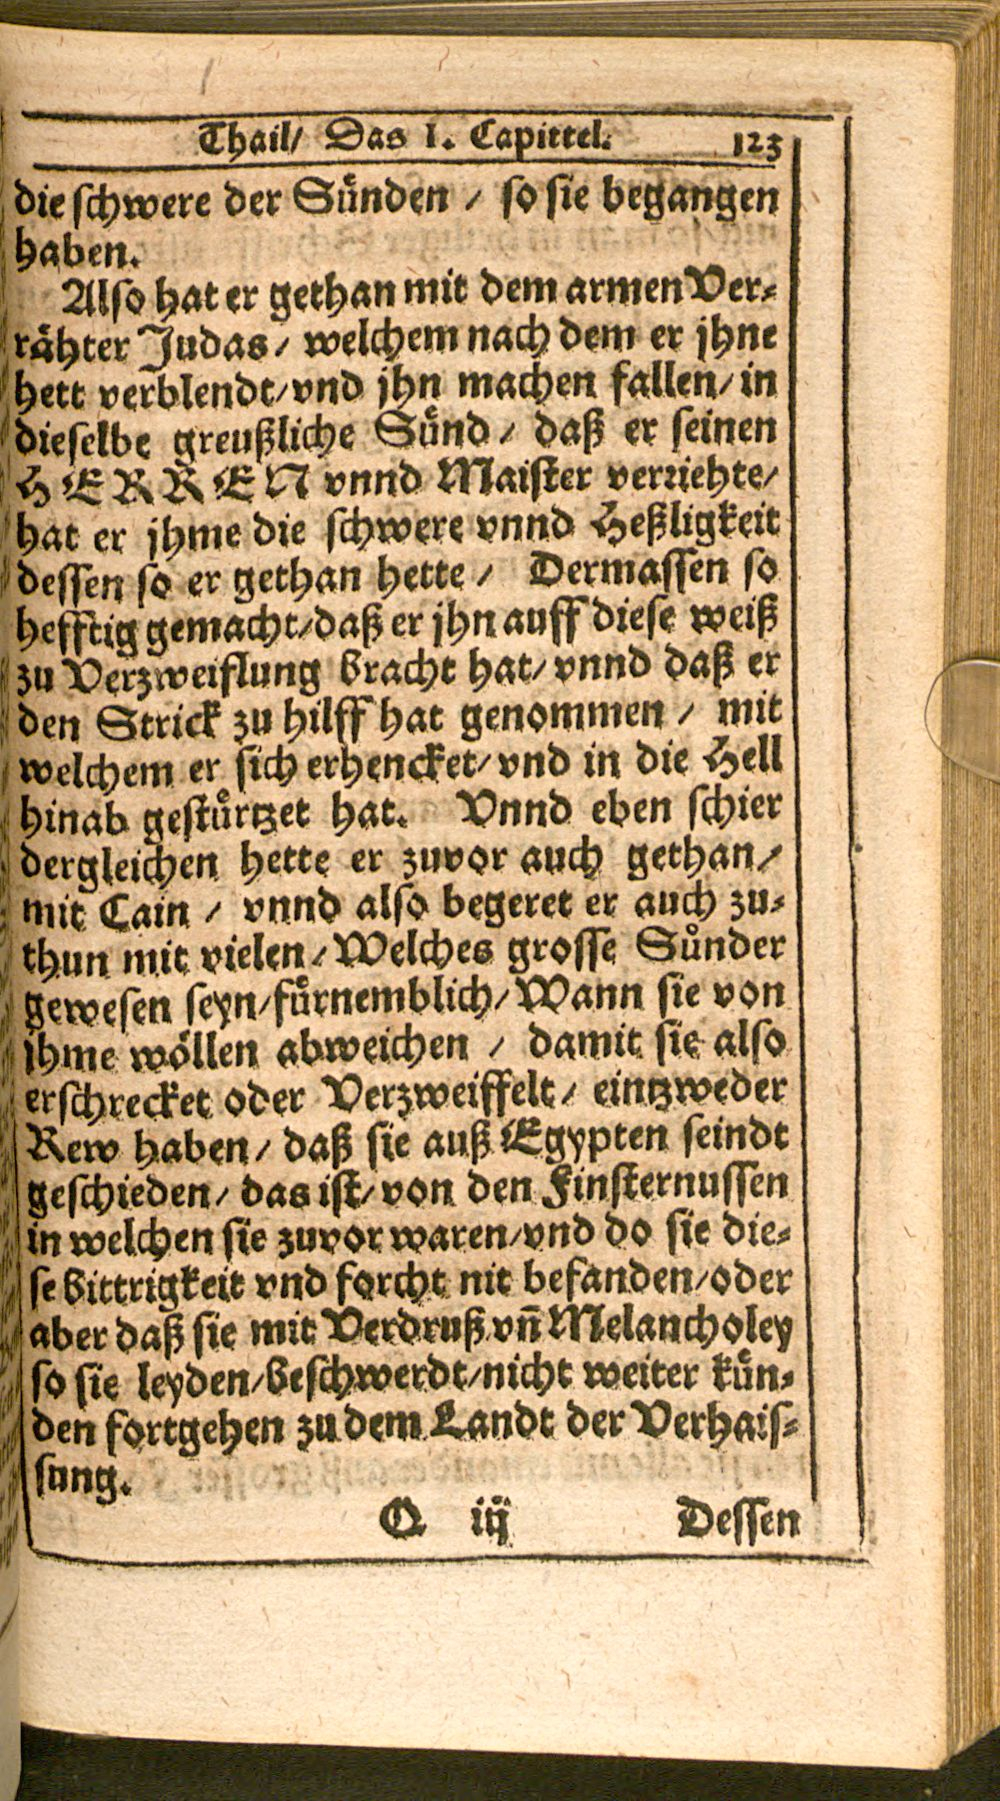 Thail/ Das I. Capittel. 123
die schwere der Sünden / so sie begangen
haben.
Also hat er gethan mit dem armen Ver-
rähter Judas / welchem nach dem er jhne
hett verblendt/vnd jhn machen fallen/in
dieselbe greußliche Sünd / daß er seinen
HERREN vnnd Maister verriehte/
hat er jhme die schwere vnnd Heßligkeit
dessen so er gethan hette / Dermassen so
hefftig gemacht/daß er jhn auff diese weiß
zu Verzweiflung bracht hat/vnnd daß er
den Strick zu hilff hat genommen / mit
welchem er sich erhencket/vnd in die Hell
hinab gestürtzet hat. Vnnd eben schier
dergleichen hette er zuvor auch gethan/
mit Cain / vnnd also begeret er auch zu-
thun mit vielen/Welches grosse Sünder
gewesen seyn/fürnemblich/Wann sie von
jhme wöllen abweichen / damit sie also
erschrecket oder Verzweiffelt / eintzweder
Rew haben / daß sie auß Egypten seindt
geschieden / das ist/von den Finsternussen
in welchen sie zuvor waren/vnd do sie die-
se bittrigkeit vnd forcht nit befanden/oder
aber daß sie mit Verdruß vñ Melancholey
so sie leyden/beschwerdt/nicht weiter kün-
den fortgehen zu dem Landt der Verhais-
sung.
Q iij Dessen